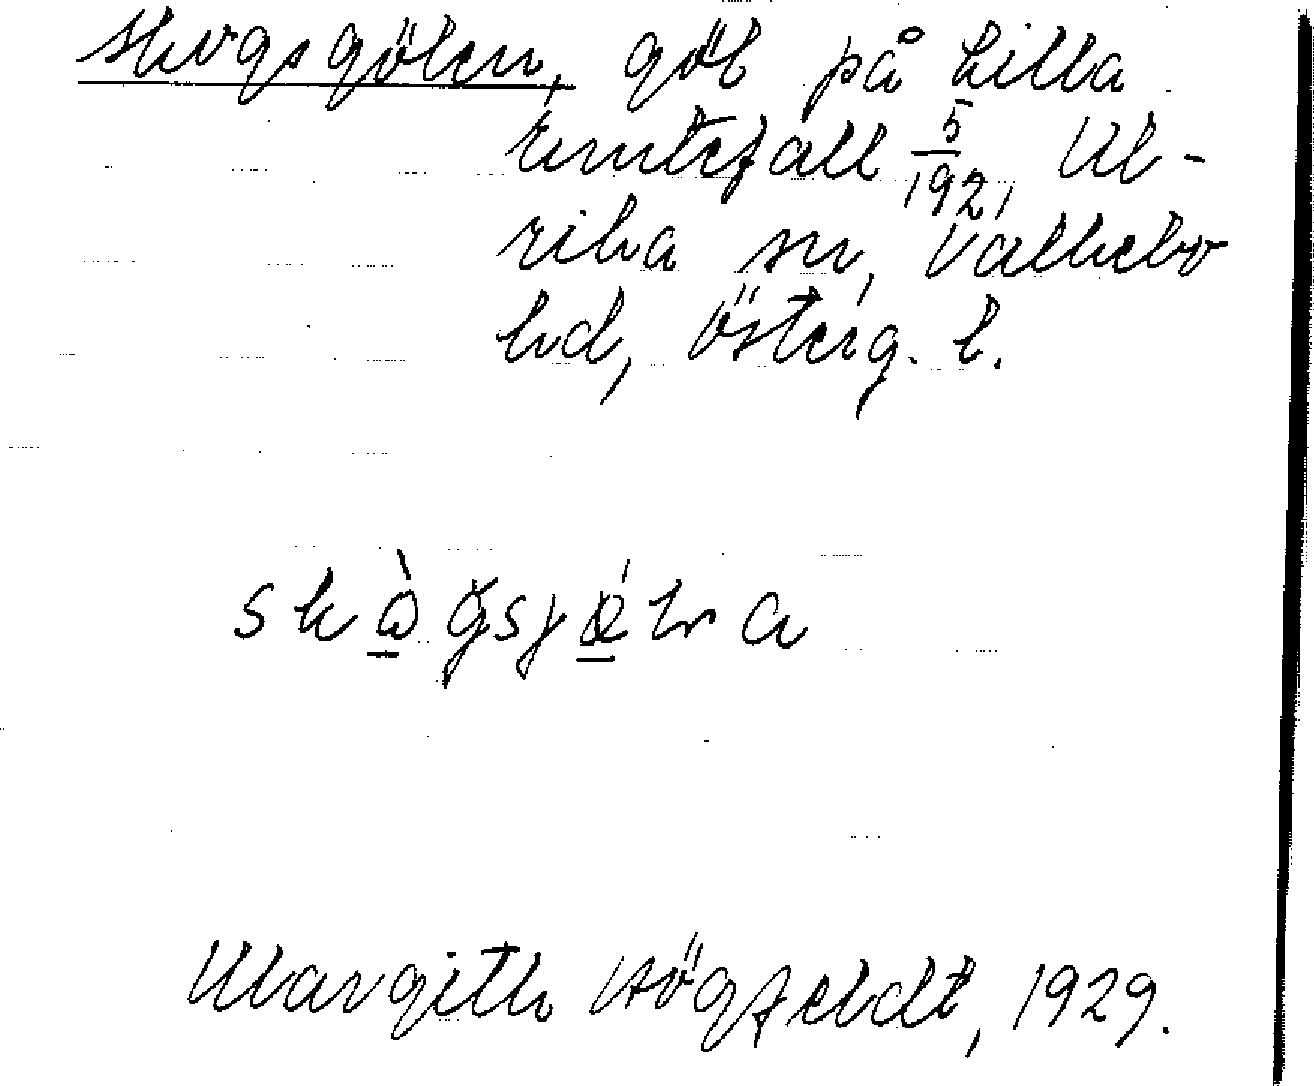 Skogsgölen, göl på Lilla
Emtefall 5/192, Ul-
rika sn, Valkebo
hd, Österg. l.
Margith Högfeldt, 1929.